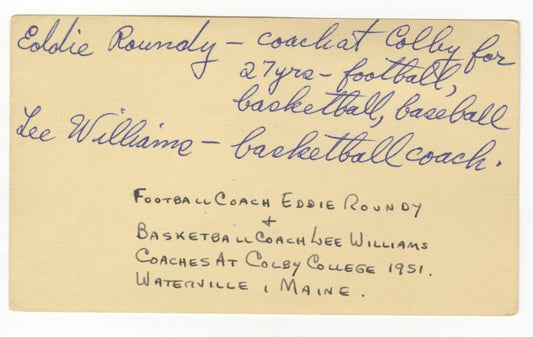 Eddie Roundy – coach at Colby for
27 yrs – football,
basketball, baseball
Lee Williams – basketball coach.
FOOTBALL COACH EDDIE ROUNDY
+
BASKETBALL COACH LEE WILLIAMS
COACHES AT COLBY COLLEGE 1951.
WATERVILLE, MAINE.